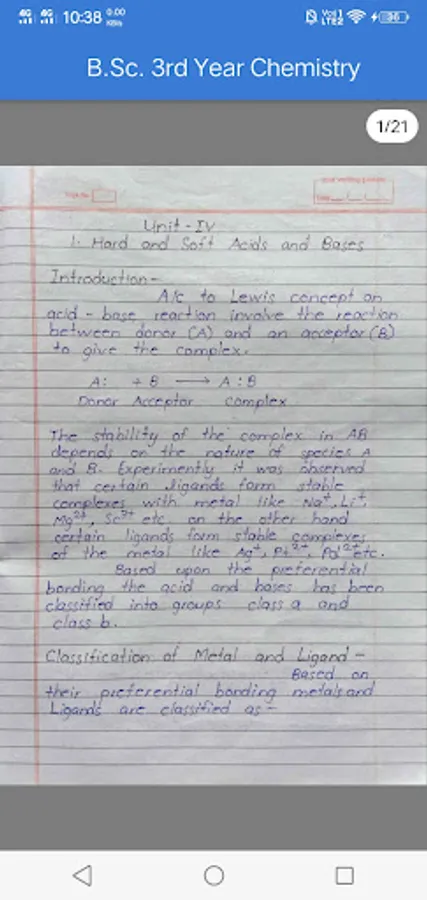 10:38 0.00 KB/s
B.Sc. 3rd Year Chemistry
1/21
Unit - IV
1. Hard and Soft Acids and Bases
Introduction -
A/c to Lewis concept an
acid - base reaction involve the reaction
between donor (A) and an acceptor (B)
to give the complex.
A: + B ⟶ A : B
Donor Acceptor Complex
The stability of the complex in AB
depends on the nature of species A
and B. Experimently it was observed
that certain ligands form stable
complexes with metal like Na⁺, Li⁺,
Mg²⁺, Sc³⁺ etc on the other hand
certain ligands form stable complexes
of the metal like Ag⁺, Pt²⁺, Pd²⁺ etc.
Based upon the preferential
bonding the acid and bases has been
classified into groups class a and
class b.
Classification of Metal and Ligand -
Based on
their preferential bonding metals and
Ligands are classified as -